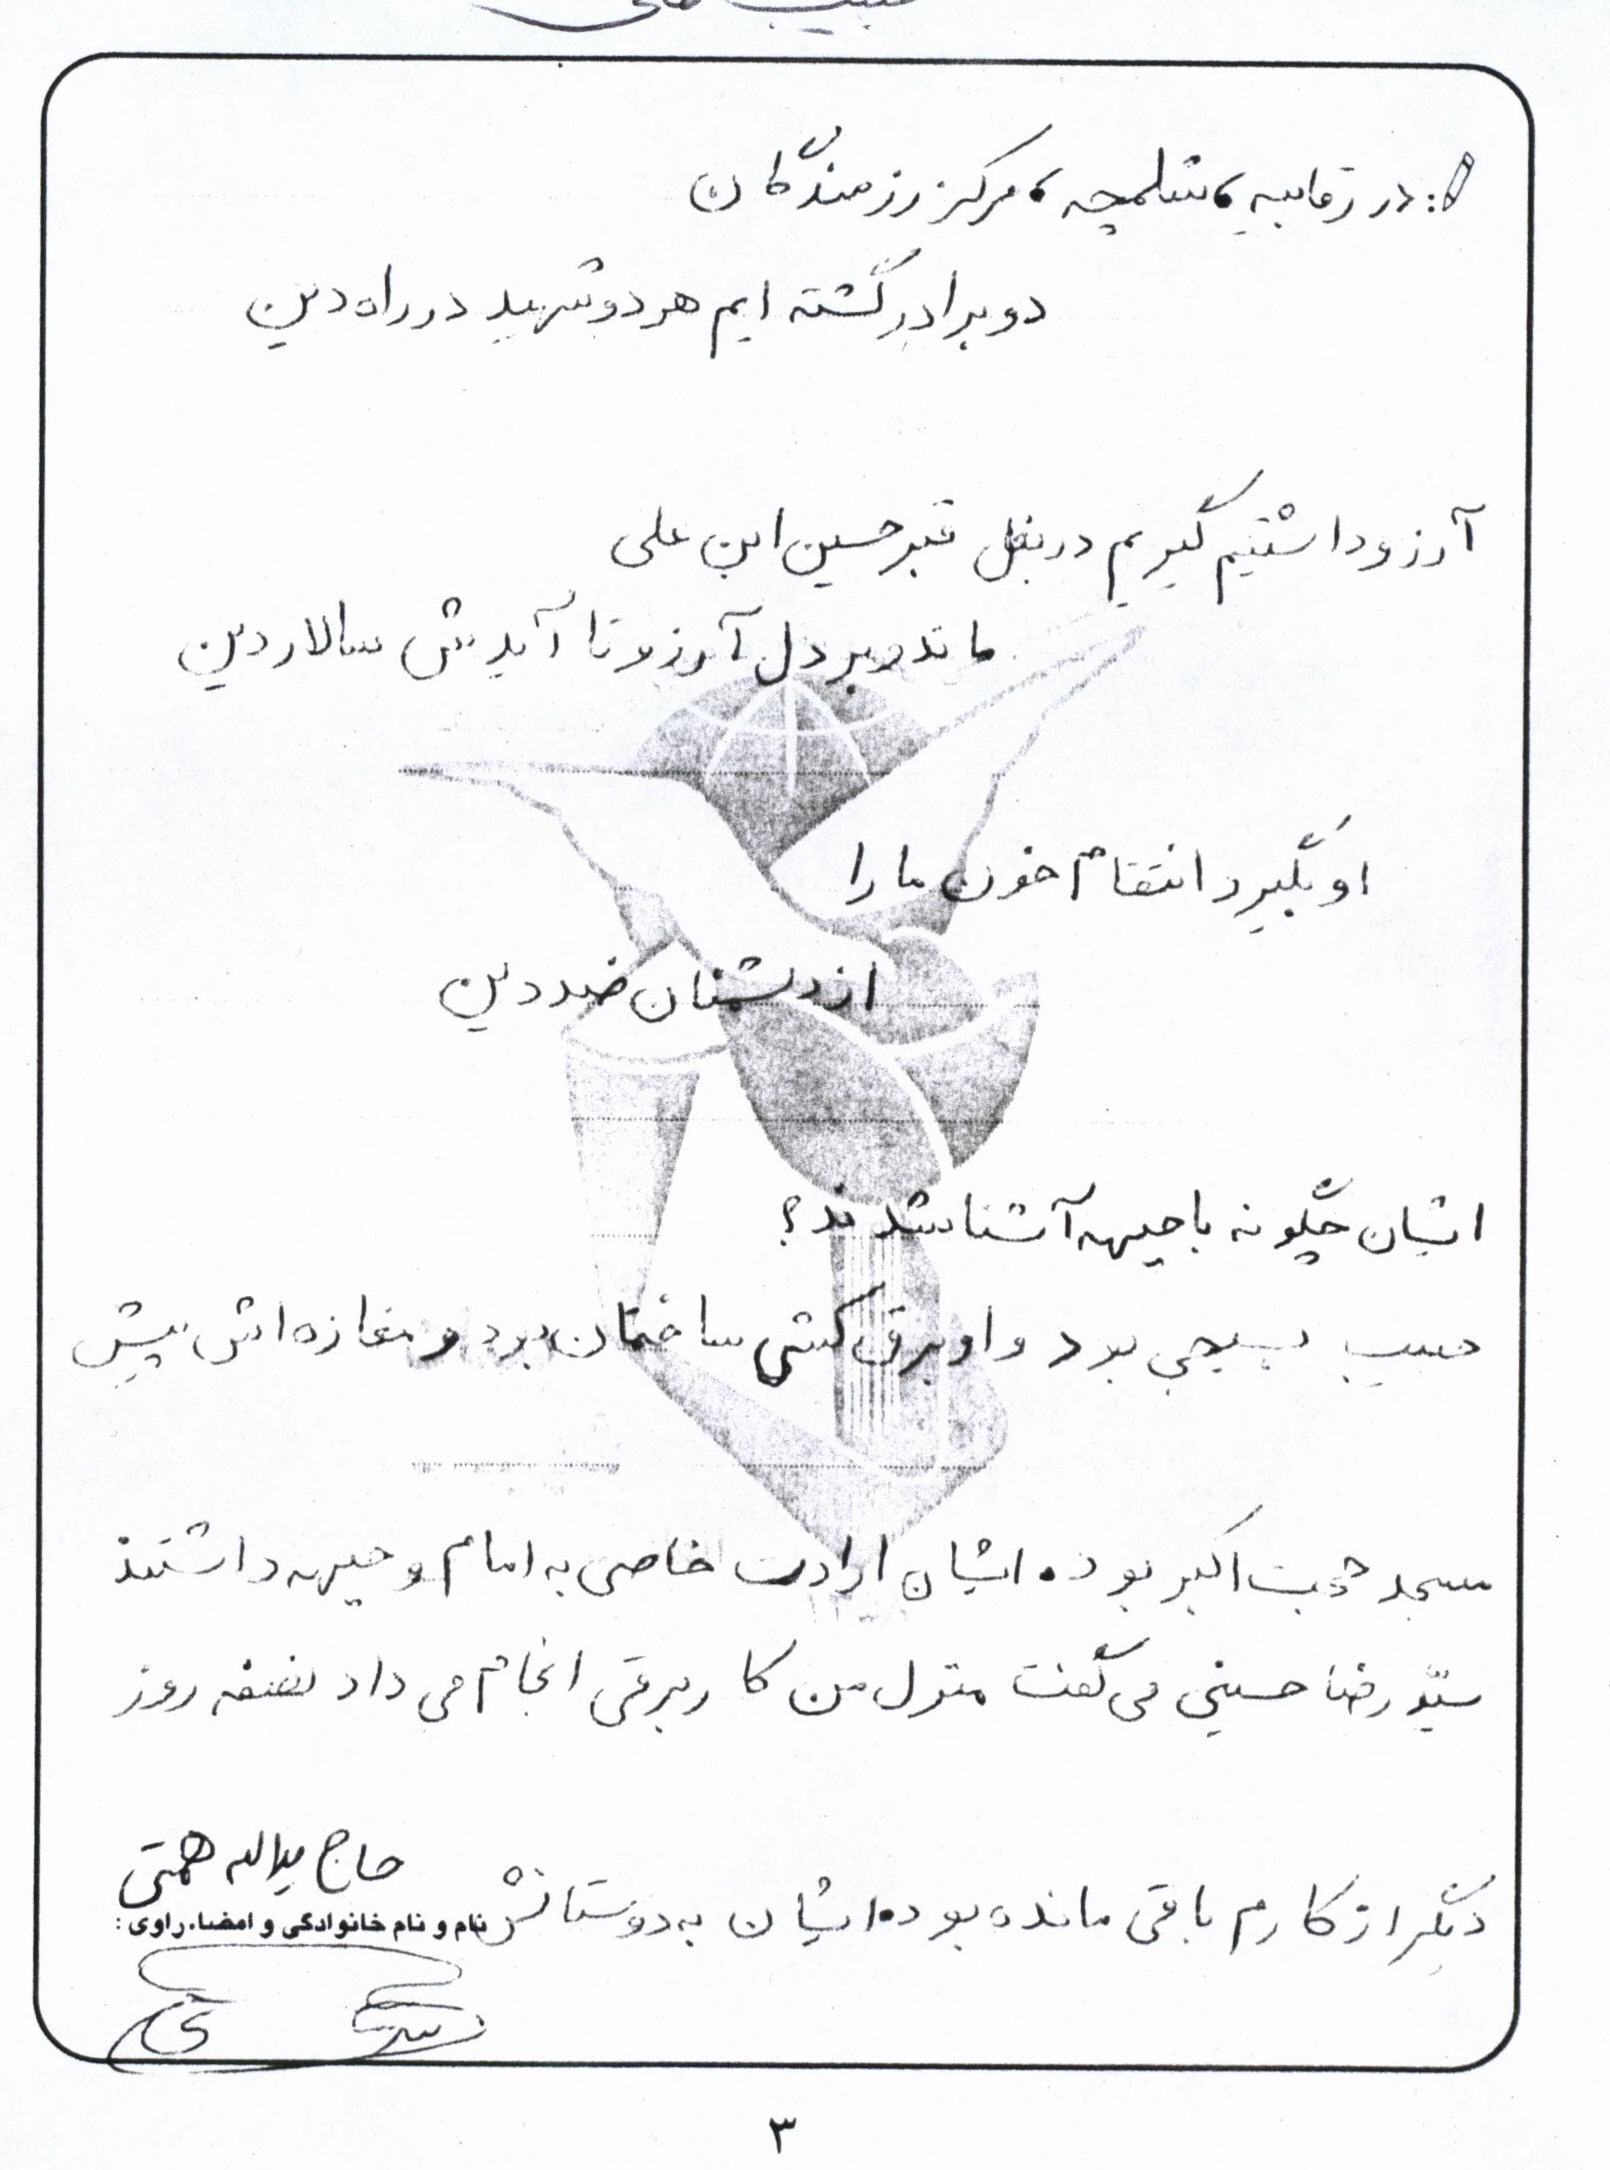 در رقابیه، شلمچه، مرکز رزمندگان
دو برادر گشته ایم هر دو شهید در راه دین
آرزو داشتیم گیریم در بغل قبر حسین ابن علی
ماند بر دل آرزو تا آیدش سالار دین
او بگیرد انتقام خون ما را
از دشمنان ضد دین
ایشان چگونه با جبهه آشنا شدند؟
حبیب بسیجی بود و او برق کشی ساختمان بود و مغازه اش پیش
مسجد حجت اکبر بوده ایشان ارادت خاصی به امام و جبهه داشتند
سیّد رضا حسینی می گفت منزل من کار برقی انجام می داد نصفه روز
دیگر از کارم باقی مانده بود ایشان به دوستانش
حاج یداله همتی
نام و نام خانوادگی و امضاء راوی:
۳